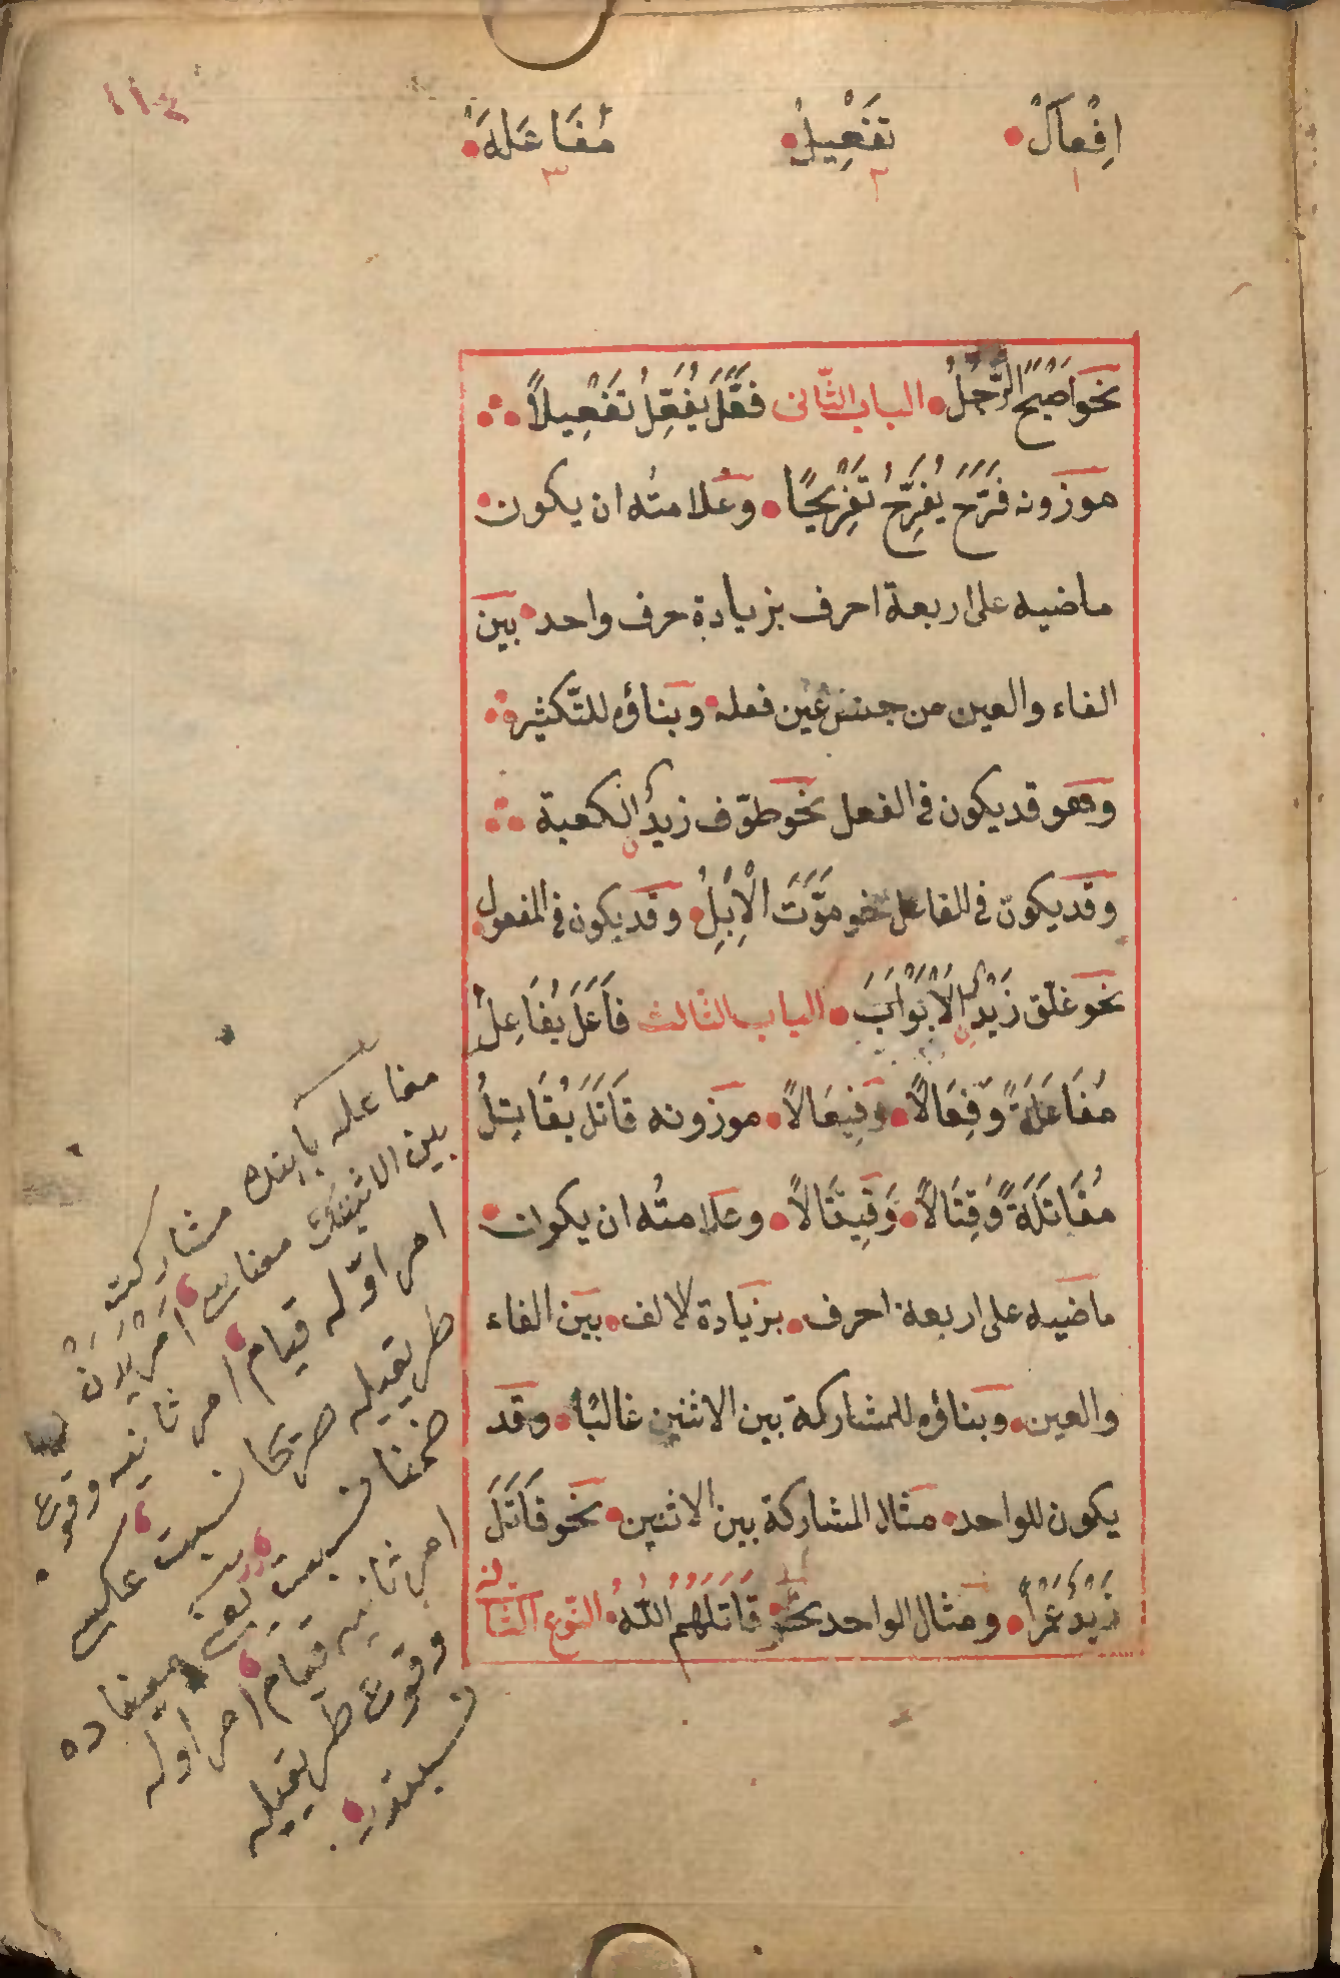 ١١٤
اِفْعَالْ تَفْعِيلْ مُفَاعَلَهْ
١ ٢ ٣
نحو اَصْبَحَ الرَّجُلُ الباب الثّانى فَعَّلَ يُفَعِّلُ تَفْعِيلاً
موزونه فَرَّحَ يُفَرِّحُ تَفْرِيحًا وعلامتُه ان يكون
ماضيه على اربعة احرف بزيادة حرف واحد بين
الفاء والعين من جنس عين فعله وبناؤه للتّكثير
وهو قد يكون فى الفعل نحو طوّف زيدٌ الكعبة
وقد يكون فى الفاعل نحو مَوَّتَ الْاِبِلُ وقد يكون فى المفعول
نحو غلّق زَيْدٌ الْاَبْوَابَ الباب الثالث فَاعَلَ يُفَاعِلُ
مُفَاعَلَةً وَفِعَالاً وَفِيعَالاً موزونه قَاتَلَ يُقَاتِلُ
مُقَاتَلَةً وَقِتَالاً وَقِيتَالاً وعلامتُه ان يكون
ماضيه على اربعة احرف بزيادة الالف بين الفاء
والعين وبناؤه للمشاركة بين الاثنين غالبًا وقد
يكون للواحد مثال المشاركة بين الاثنين نحو قَاتَلَ
زَيْدٌ عَمْراً ومثال الواحد نحو قَاتَلَهُمُ اللّٰهُ النّوع الثّانى
مفاعله بابنك مشاركت
بين الاثنينك معناسى امْرَيْدَنْ
امر اوّله قيام امر ثانيه وقوع
طريقيله صريحا نسبت عكسى
ضمنا نسبت يعنى
امر ثانيه قيام امر اوله
وقوع طريقيله
نسبتدر